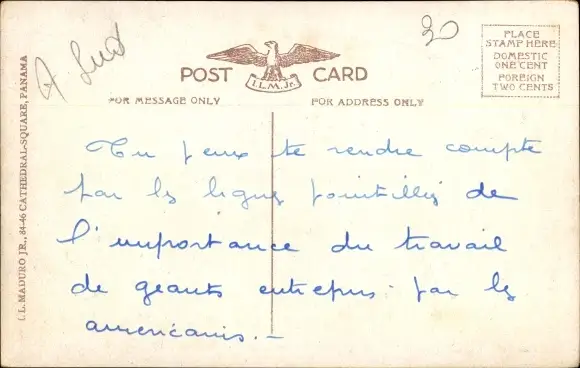 20
PLACE
STAMP HERE
DOMESTIC
ONE CENT
FOREIGN
TWO CENTS
POST CARD
I.L.M. Jr.
FOR MESSAGE ONLY
FOR ADDRESS ONLY
I. L. MADURO JR., 84-46 CATHEDRAL-SQUARE, PANAMA
Tu peux te rendre compte
par les lignes pointillés de
l'importance du travail
de géants entrepris par les
américains. -